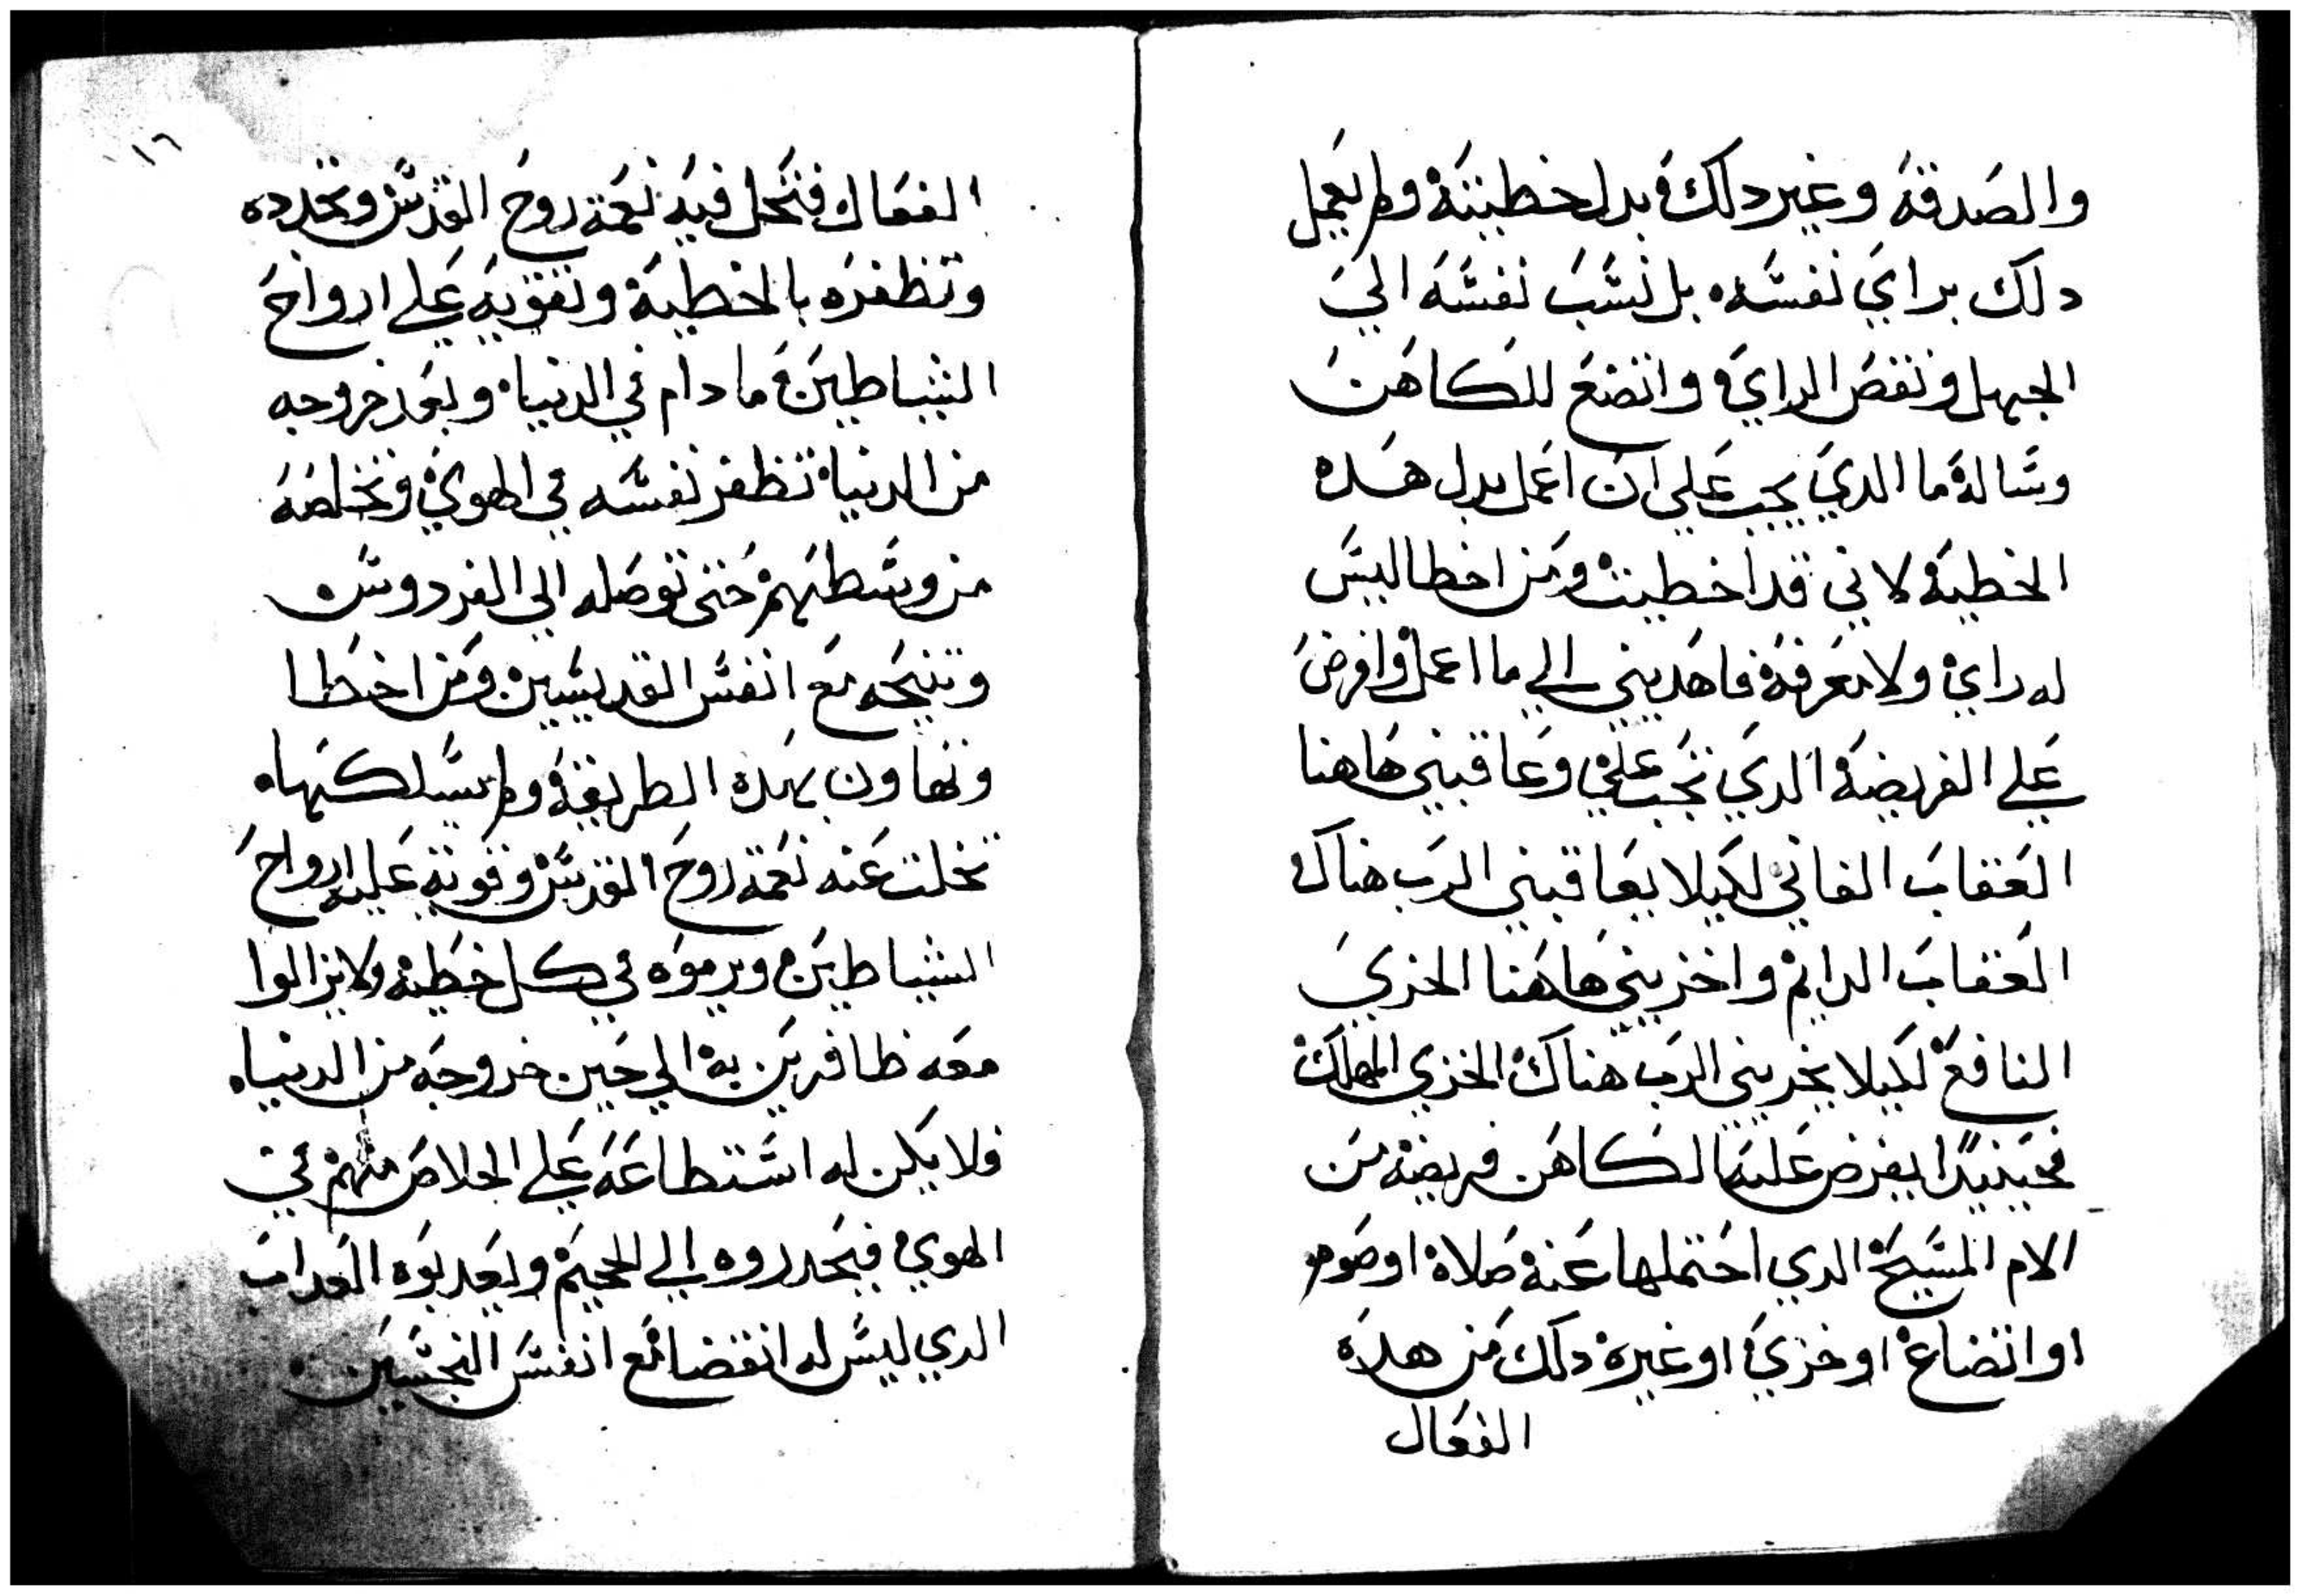 والصدقة وغير دلك بدل خطيته ولم يعمل
دلك براي نفسه بل نسب نفسه الي
الجهل ونقص الراي واتضع للكاهن
وساله ما الدي يجب علي ان اعمل بدل هده
الخطية لاني قد اخطيت ومن اخطا ليس
له راي ولا معرفة فاهديني الي ما اعمل وافرض
علي الفريضة الدي تجب علي وعاقبني هاهنا
العقاب الفاني لكيلا يعاقبني الرب هناك
العقاب الدايم واخزيني هاهنا الخزي
النافع لكيلا يخزيني الرب هناك الخزي المهلك
فحينيدا يفرض عليه الكاهن فريضة من
الام المسيح الدي احتملها عنه صلاة او صوم
او اتضاع او خزي او غيره دلك من هده
الفعال
١٦
الفعال فتحل فيه نعمة روح القدس وتجدده
وتظفره بالخطية وتقويه علي ارواح
الشياطين ما دام في الدنيا وبعد خروجه
من الدنيا تظفر نفسه في الهوي وتخلصه
من وسطهم حتي توصله الي الفردوس
وتنيحه مع انفس القديسين ومن اخطا
وتهاون بهده الطريقة ولم يسلكها
تخلت عنه نعمة روح القدس وقوية عليه ارواح
الشياطين ويرموه في كل خطية ولا يزالوا
معه ظافرين به الي حين خروجه من الدنيا
فلا يكن له استطاعه علي الخلاص منهم في
الهوي فيحدروه الي الجحيم ويعدبوه العداب
الدي ليس له انقضا مع انفس النجسين